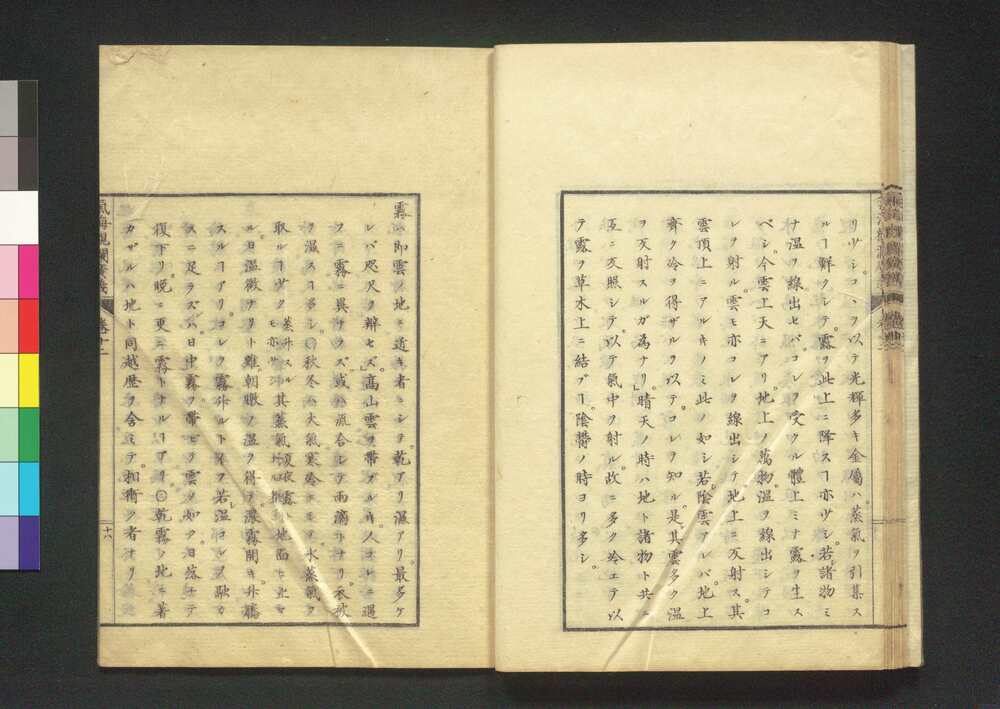 リヅシ。コヽヲ以テ光輝多キ金屬ハ。蒸氣ヲ引集ス
ルヿ鮮クシテ。露ヲ此上ニ降スヿ亦少シ。若諸物ミ
ナ温ヲ線出セバ。コレヲ受クル體上ミナ露ヲ生ス
ベシ。今雲上天ニアリ。地上ノ萬物。温ヲ線出シテコ
レヲ射ル。雲モ亦コレヲ線出シテ地上ニ反射ス。其
雲頂上ニアルキノミ此ノ如シ。若陰雲アレバ。地上
齊ク冷ヲ得ザルヲ以テ。コレヲ知ル。是其雲多ク温
ヲ反射スルガ爲ナリ。」晴天ノ時ハ地ト諸物ト共ニ
互ニ反照シテ。以テ氣中ヲ射ル。故ニ多ク冷エテ以
テ露ヲ草木上ニ結ブヿ。陰翳ノ時ヨリ多シ。
霧ハ即雲ノ地ニ近キ者ニシテ。乾アリ濕アリ。最多ケ
レバ咫尺ヲ辨セズ。」高山雲ヲ帶ブルキ。人コレニ遇
フニ霧ニ異ナラズ。或ハ流合シテ雨滴トナリ。衣被
ヲ濕スヿ多シ。〇秋冬ハ大氣寒冷ニモ。水蒸氣ヲ
取ルヿ少ク
其蒸氣
地面ニ止マ
ル。日温微ナリト雖。朝暾ノ温ヲ得テ。濛霧開キ升騰
スルヿアリ。コレヲ霧升ルト云フ。若温コレヲ融カ
スニ足ラズハ。日中霧ヲ帶ビテ雲ノ如ク。日落チテ
復下リ。晩ニ更ニ霧トナルヿアリ〇乾霧ノ地ニ著
カザルハ地ト同越歷ヲ含ミテ。相衝ク者ナリ
氣海觀瀾廣義
卷十二
十六